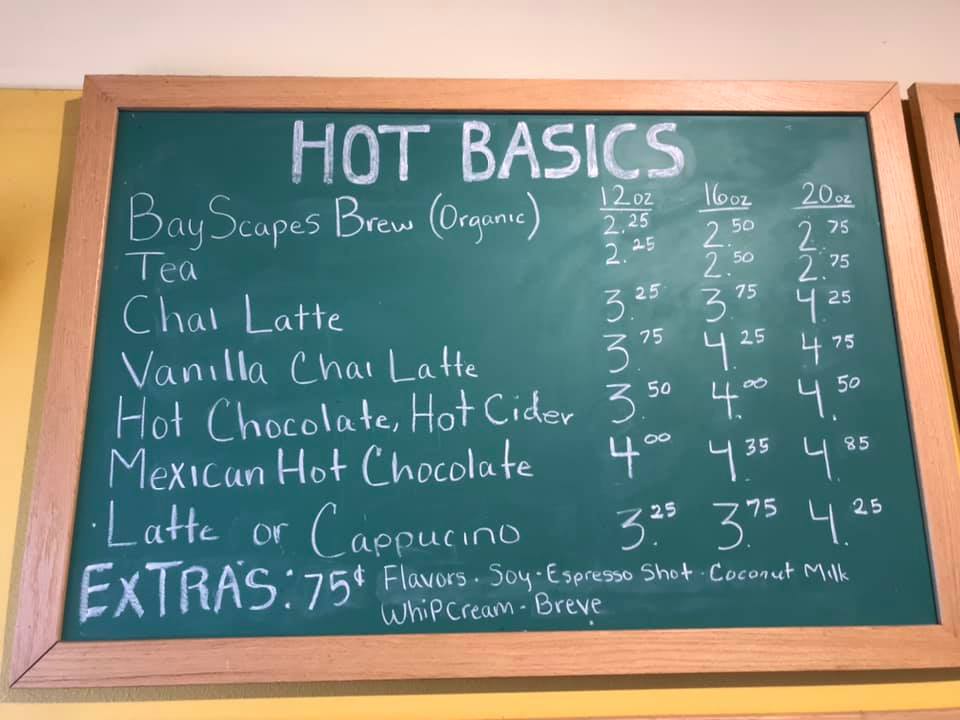 HOT BASICS
12oz 16oz 20oz
BayScapes Brew (Organic) 2.25 2.50 2.75
Tea 2.25 2.50 2.75
Chai Latte 3.25 3.75 4.25
Vanilla Chai Latte 3.75 4.25 4.75
Hot Chocolate, Hot Cider 3.50 4.00 4.50
Mexican Hot Chocolate 4.00 4.35 4.85
Latte or Cappucino 3.25 3.75 4.25
EXTRA'S: 75¢ Flavors · Soy · Espresso Shot · Coconut Milk
WhipCream - Breve